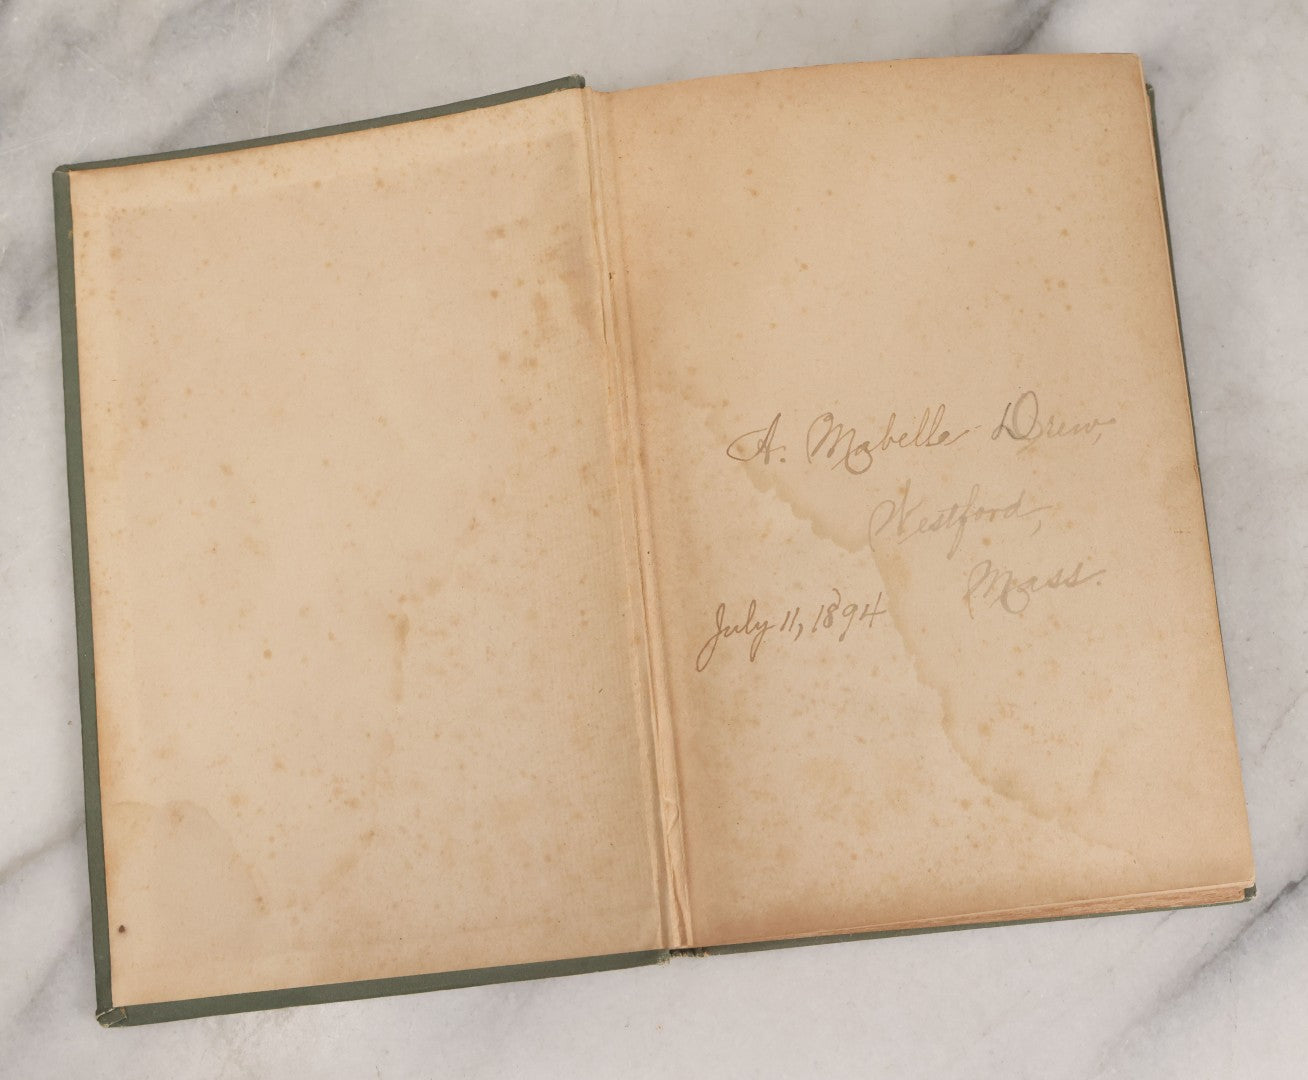 A. Mabelle Drew,
Westford,
Mass.
July 11, 1894